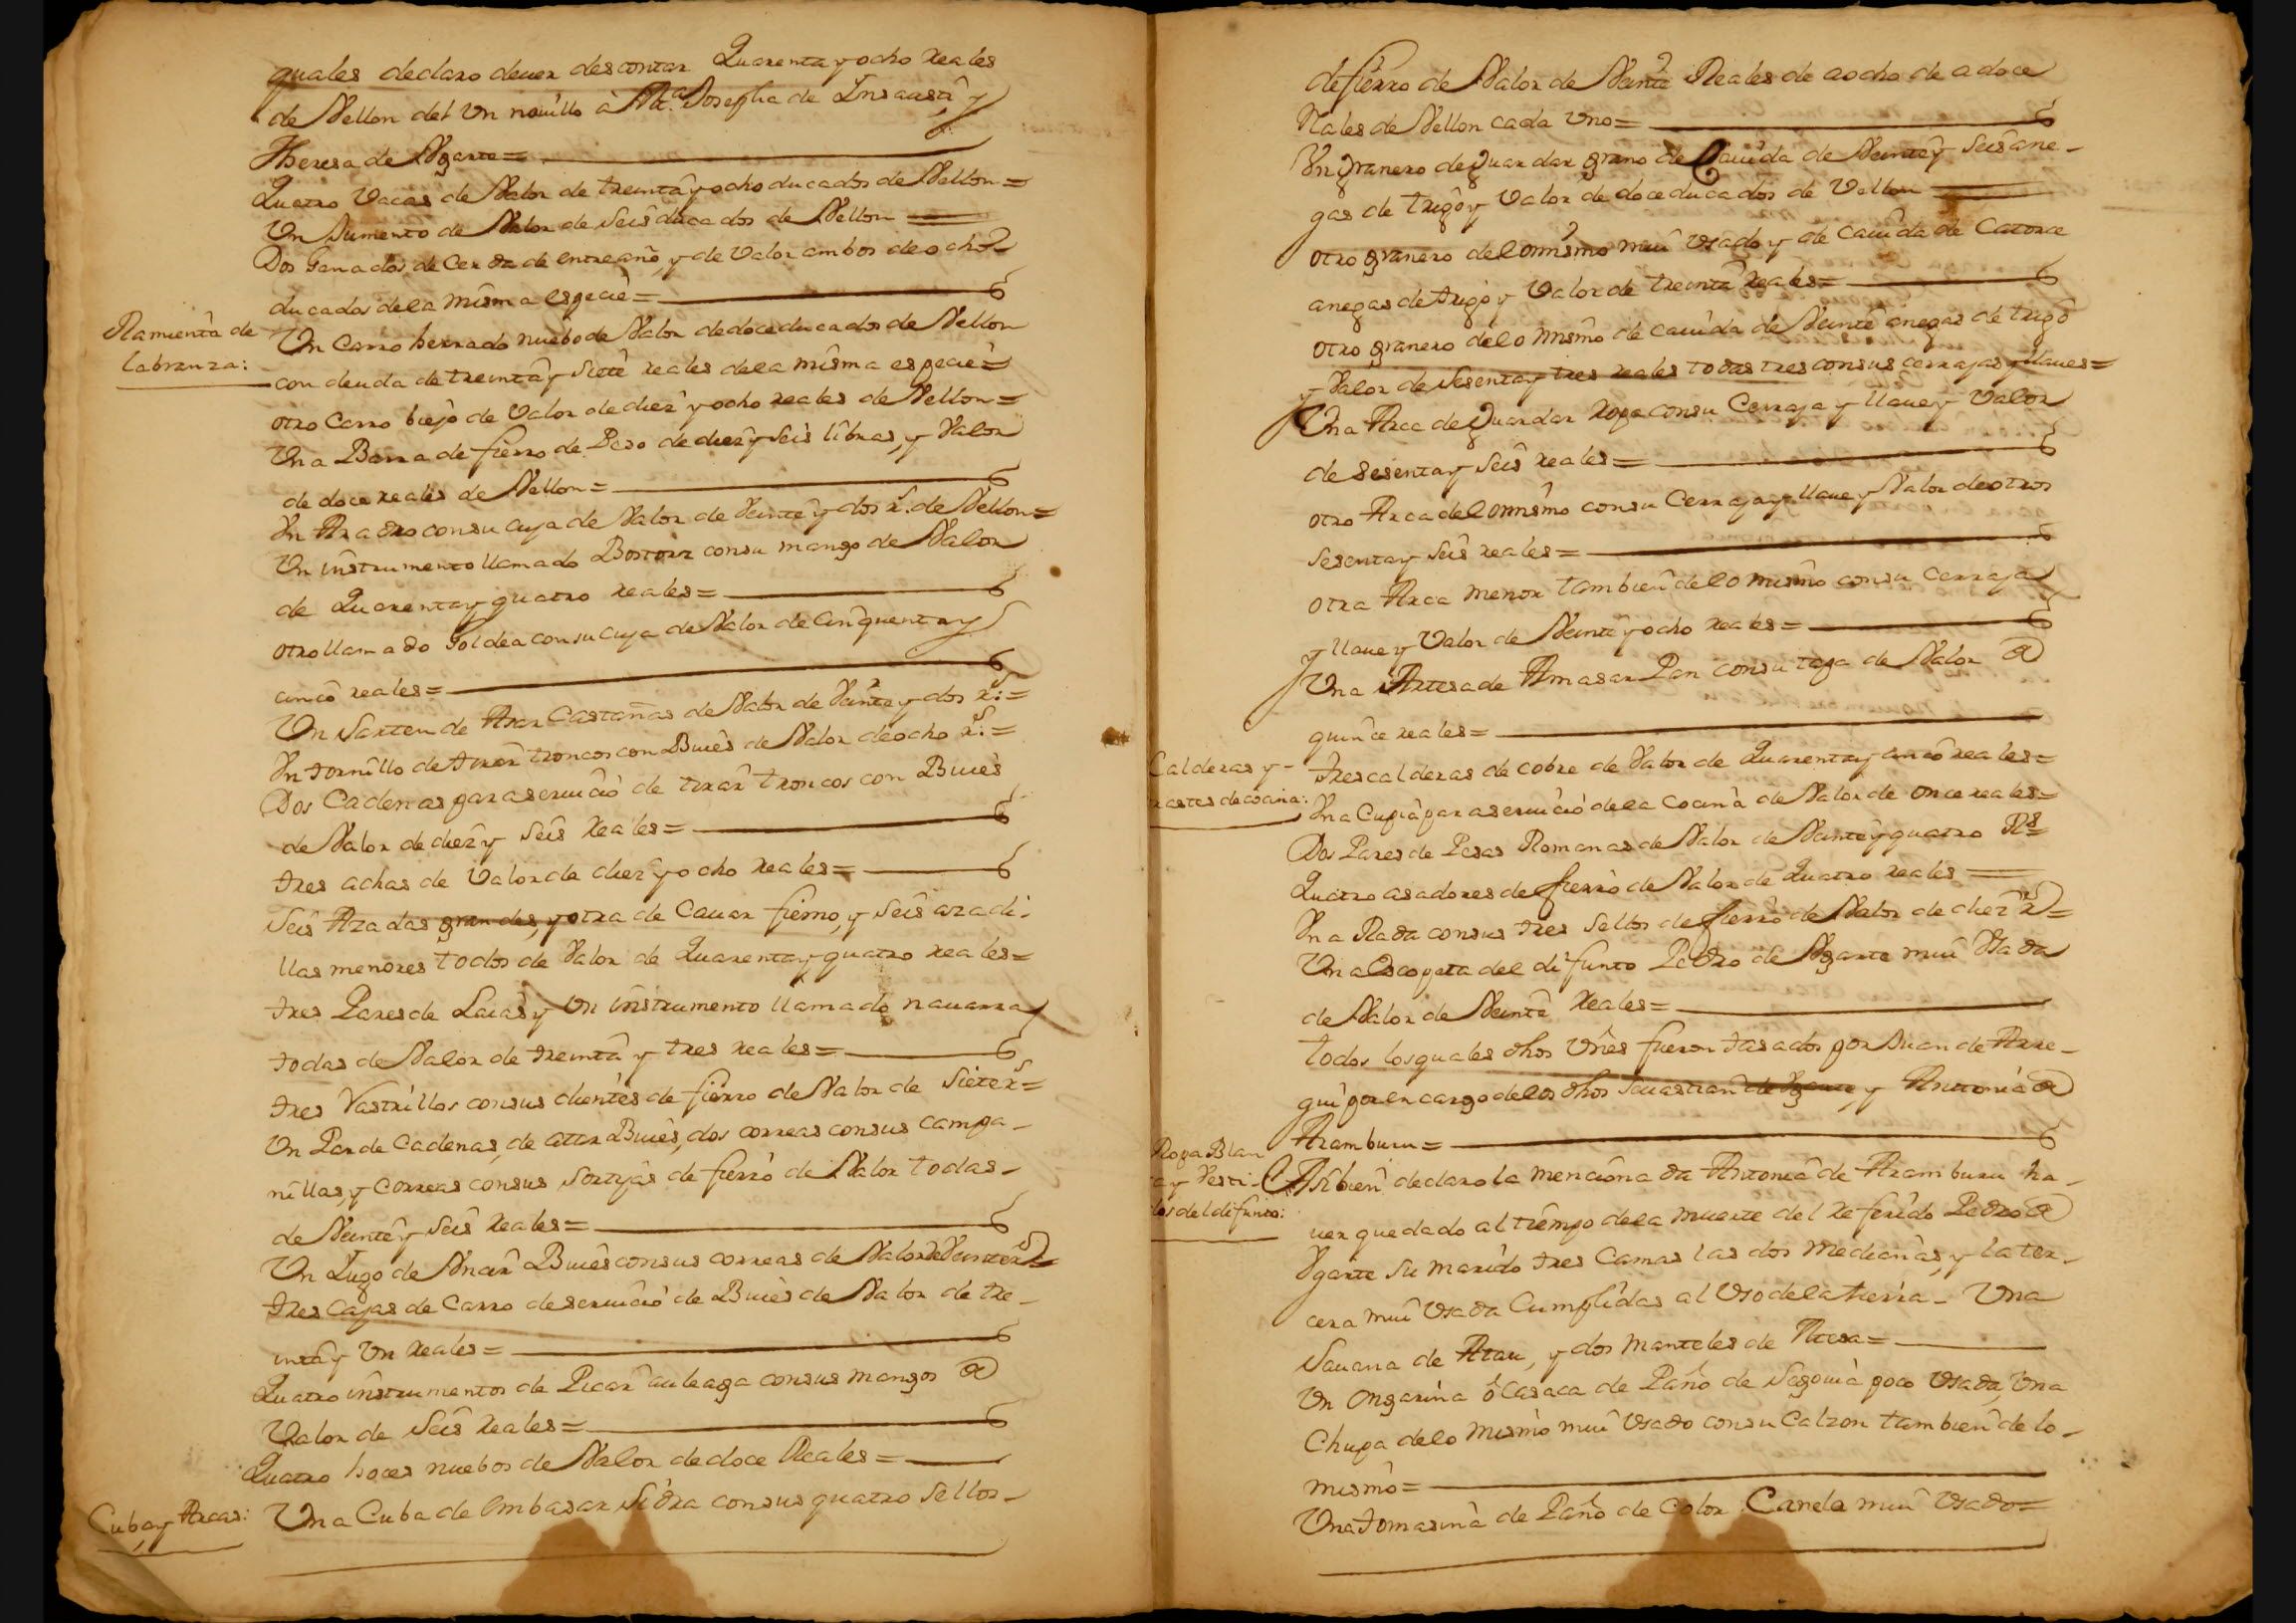 quales declaro dever descontar Quarenta y ocho reales
de Vellon del Vn novillo à Ma. Josepha de Insausti, y
Theresa de Vgarte=
Quatro Vacas de Valor de treinta y ocho ducados de Vellon=
Vn Jumento de Valor de seis ducados de Vellon
Dos Ganados de Cerda de entreaño, y de Valor ambos de ocho
ducados de la misma especie=
Ramienta de
labranza:
Vn Carro herrado nuebo de Valor de doce ducados de Vellon
con deuda de treinta y siete reales de la misma especie=
otro Carro biejo de Valor de diez y ocho reales de Vellon=
Vna Barra de fierro de Peso de diez y seis libras, y Valor
de doce reales de Vellon=
Vn Aradro con su cuja de Valor de Veinte y dos rs. de Vellon=
Vn instrumento llamado Bostorz con su mango de Valor
de Quarenta y quatro reales=
otro llamado Goldea con su cuja de Valor de Cinquenta y
cinco reales=
Vn Sarten de Asar Castañas de Valor de Veinte y dos rs.=
Vn tornillo de tirar troncos con Bueis de Valor de ocho rs.=
Dos Cadenas para servicio de tirar troncos con Bueis
de Valor de diez y seis reales=
tres achas de Valor de diez y ocho reales=
Seis Azadas grandes, y otra de Cavar fiemo, y seis azadi-
llas menores todos de Valor de Quarenta y quatro reales=
tres Pares de Laias y Vn instrumento llamado navarra
todas de Valor de treinta y tres reales=
tres Rastrillos con sus dientes de fierro de Valor de siete rs=
Vn Par de Cadenas, de atar Bueis, dos correas con sus campa-
nillas, y Correas con sus sortijas de fierro de Valor todas-
de Veinte y seis reales=
Vn Lugo de Vncir Bueis con sus correas de Valor de Veinte rs=
tres Cajas de Carro de servicio de Bueis de Valor de tre-
inta y Vn reales=
Quatro instrumentos de Picar auleaga con sus mangos de
Valor de seis reales=
Quatro hoces nuebos de Valor de doce Reales=
Cuba, y Arcas:
Vna Cuba de embasar sidra con sus quatro sellos-
de fierro de Valor de Veinte Reales de a ocho de a doce
Rales de Vellon cada Vno=
Vn granero de guardar grano de Cavida de Veinte y seis ane-
gas de trigo y Valor de doce ducados de Vellon
otro granero de lo mismo mui Vsado y de Cavida de Catorce
anegas de trigo y Valor de treinta reales=
otro granero de lo mismo de cavida de Veinte anegas de trigo
y Valor de Sesenta y tres reales todas tres con sus cerrajas y llaves=
Vna Arca de guardar ropa con su Cerraja y llave y Valor
de sesenta y seis reales=
otro Arca de lo mismo con su Cerraja y llave y Valor de otros
sesenta y seis reales=
otra Arca menor tambien de lo mismo con su cerraja
y llave y Valor de Veinte y ocho reales=
Vna Artesa de Amasar Pan con su tapa de Valor de
quince reales=
Calderas y-
trastes de cocina:
tres calderas de cobre de Valor de Quarenta y cinco reales=
Vna Cupia para servicio de la Cocina de Valor de once reales=
Dos Pares de Pesas Romanas de Valor de Veinte y quatro Rs=
Quatro asadores de fierro de Valor de Quatro reales
Vna Rada con sus tres sellos de fierro de Valor de diez rs=
Vna Escopeta del difunto Pedro de Vgarte mui Vsada
de Valor de Veinte reales=
todos los quales dhos Vnes fueron tasados por Juan de Arre-
gui por encargo de los dhos Sevastian de Vgarte y Antonia de
Aramburu=
Ropa Blan
ca y Vesti-
dos del difunto:
Asi bien declaro la menciona da Antonia de Aramburu ha-
ver quedado al tiempo de la muerte del referido Pedro de
Vgarte su marido tres Camas las dos medianas, y la ter-
cera mui Vsada Cumplidas al Vso de la tierra- Vna
Savana de Atau, y dos manteles de Mesa=
Vn ongarina ô Casaca de Paño de Segovia poco Vsada, Vna
Chupa de lo mismo mui Vsado con su Calzon tambien de lo-
mismo=
Vna tomasina de Paño de Color Canela mui Vsado=